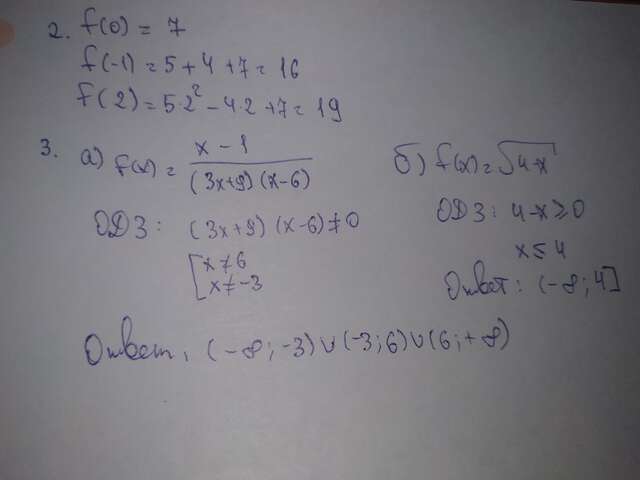 2. f(0) = 7
f(-1) = 5 + 4 + 7 = 16
f(2) = 5·2² - 4·2 + 7 = 19
3. а) f(x) = (x - 1) / ((3x+9)(x-6))
ОДЗ: (3x+9)(x-6) ≠ 0
[x ≠ 6
x ≠ -3
Ответ: (-∞; -3) ∪ (-3; 6) ∪ (6; +∞)
б) f(x) = √(4-x)
ОДЗ: 4-x ≥ 0
x ≤ 4
Ответ: (-∞; 4]